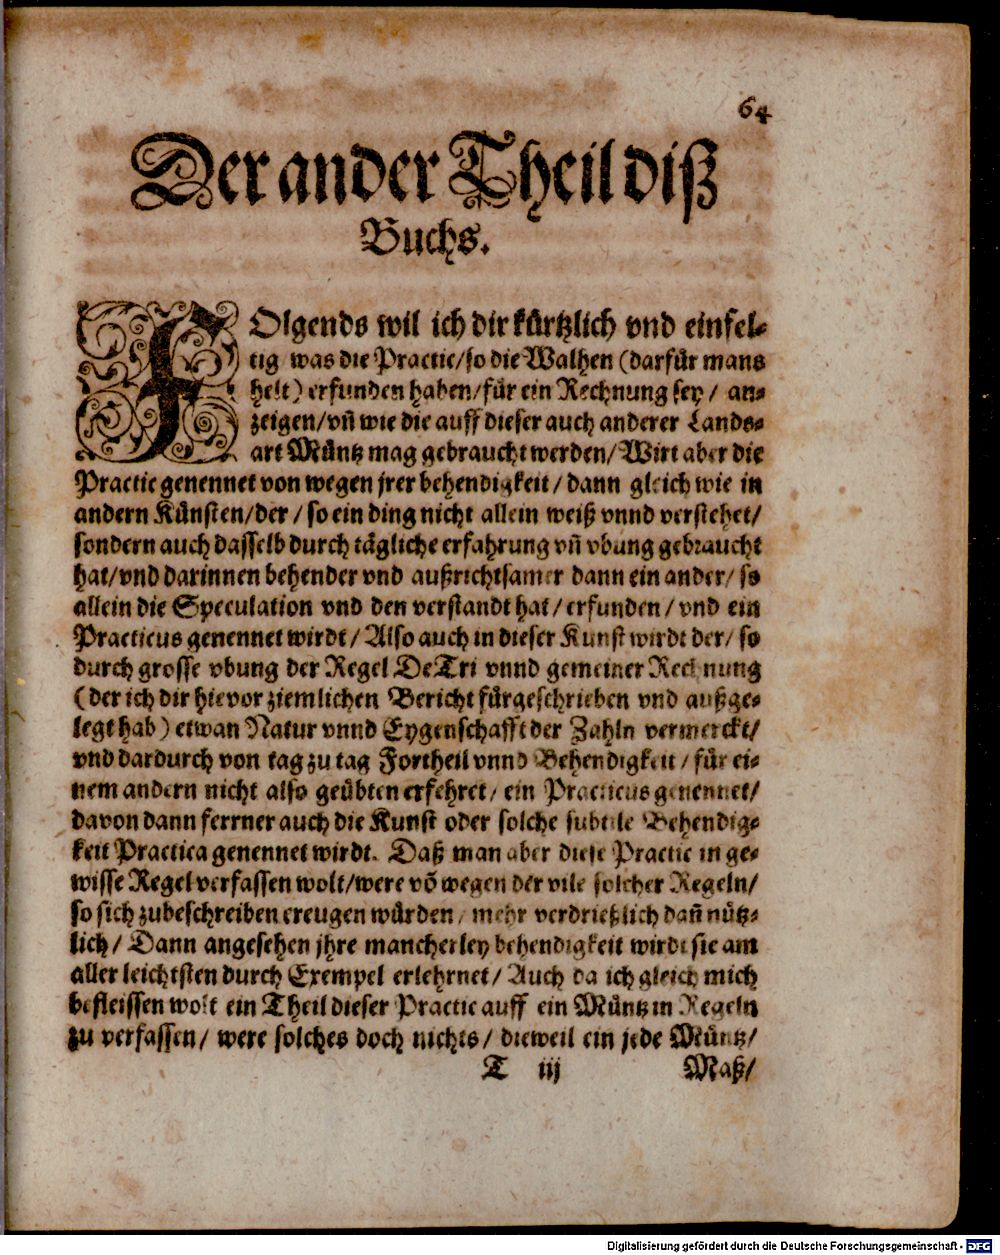 64
Der ander Theil diß
Buchs.
FOlgends wil ich dir kürtzlich vnd einfel-
tig was die Practic/so die Walhen (darfür mans
helt) erfunden haben/für ein Rechnung sey/ an-
zeigen/vñ wie die auff dieser auch anderer Lands-
art Müntz mag gebraucht werden/Wirt aber die
Practic genennet von wegen jrer behendigkeit/dann gleich wie in
andern Künsten/der/so ein ding nicht allein weiß vnnd verstehet/
sondern auch dasselb durch tägliche erfahrung vñ vbung gebraucht
hat/vnd darinnen behender vnd außrichtsamer dann ein ander/so
allein die Speculation vnd den verstandt hat/erfunden/vnd ein
Practicus genennet wirdt/Also auch in dieser Kunst wirdt der/so
durch grosse vbung der Regel DeTri vnnd gemeiner Rechnung
(der ich dir hievor ziemlichen Bericht fürgeschrieben vnd außge-
legt hab) etwan Natur vnnd Eygenschafft der Zahln vermerckt/
vnd dardurch von tag zu tag Fortheil vnnd Behendigkeit/für ei-
nem andern nicht also geübten erfehret/ein Practicus genennet/
davon dann ferrner auch die Kunst oder solche subtile Behendig-
keit Practica genennet wirdt. Daß man aber diese Practic in ge-
wisse Regel verfassen wolt/were võ wegen der vile solcher Regeln/
so sich zubeschreiben ereugen würden/mehr verdrießlich dañ nütz-
lich/Dann angesehen jhre mancherley behendigkeit wirdt sie am
aller leichtsten durch Exempel erlehrnet/Auch da ich gleich mich
befleissen wolt ein Theil dieser Practic auff ein Müntz in Regeln
zu verfassen/were solches doch nichts/dieweil ein jede Müntz/
T iij Maß/
Digitalisierung gefördert durch die Deutsche Forschungsgemeinschaft - DFG